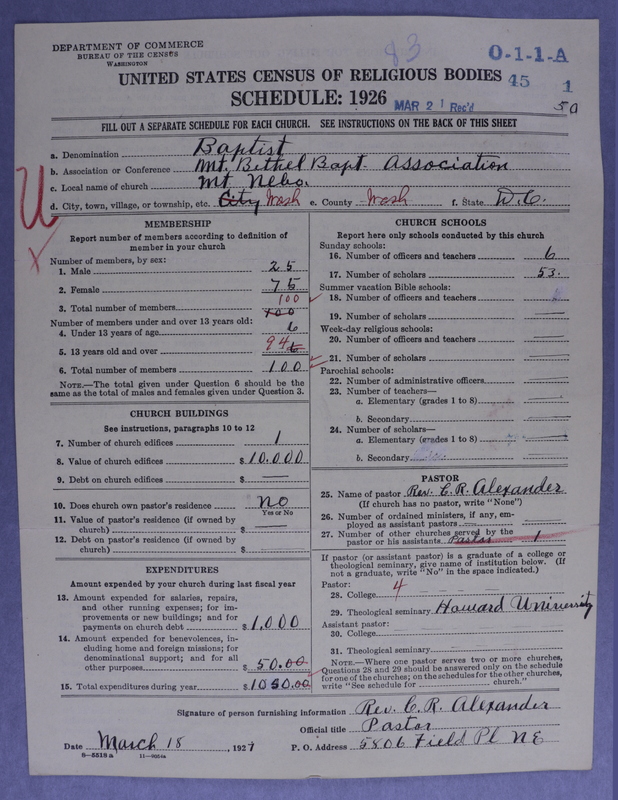 DEPARTMENT OF COMMERCE
BUREAU OF THE CENSUS
WASHINGTON
83
O-1-1-A
UNITED STATES CENSUS OF RELIGIOUS BODIES
45 1
SCHEDULE: 1926
MAR 21 Rec'd
50
FILL OUT A SEPARATE SCHEDULE FOR EACH CHURCH. SEE INSTRUCTIONS ON THE BACK OF THIS SHEET
a. Denomination Baptist
b. Association or Conference Mt. Bethel Bapt. Association
c. Local name of church Mt. Nebo.
d. City, town, village, or township, etc. City Wash e. County Wash f. State D.C.
MEMBERSHIP
Report number of members according to definition of
member in your church
Number of members, by sex:
1. Male 25
2. Female 75
100
3. Total number of members 100
Number of members under and over 13 years old:
4. Under 13 years of age 6
5. 13 years old and over 94
6. Total number of members 100
NOTE.—The total given under Question 6 should be the
same as the total of males and females given under Question 3.
CHURCH BUILDINGS
See instructions, paragraphs 10 to 12
7. Number of church edifices 1
8. Value of church edifices $10,000
9. Debt on church edifices $ —
10. Does church own pastor's residence No
Yes or No
11. Value of pastor's residence (if owned by
church) $ —
12. Debt on pastor's residence (if owned by
church) $
EXPENDITURES
Amount expended by your church during last fiscal year
13. Amount expended for salaries, repairs,
and other running expenses; for im-
provements or new buildings; and for
payments on church debt $1,000
14. Amount expended for benevolences, in-
cluding home and foreign missions; for
denominational support; and for all
other purposes $50.00
15. Total expenditures during year $1050.00
CHURCH SCHOOLS
Report here only schools conducted by this church
Sunday schools:
16. Number of officers and teachers 6
17. Number of scholars 53.
Summer vacation Bible schools:
18. Number of officers and teachers
19. Number of scholars —
Week-day religious schools:
20. Number of officers and teachers —
21. Number of scholars —
Parochial schools:
22. Number of administrative officers —
23. Number of teachers—
a. Elementary (grades 1 to 8) —
b. Secondary —
24. Number of scholars—
a. Elementary (grades 1 to 8) —
b. Secondary —
PASTOR
25. Name of pastor Rev. C. R. Alexander
(If church has no pastor, write "None")
26. Number of ordained ministers, if any, em-
ployed as assistant pastors —
27. Number of other churches served by the
pastor or his assistants Pastor 1
If pastor (or assistant pastor) is a graduate of a college or
theological seminary, give name of institution below. (If
not a graduate, write "No" in the space indicated.)
Pastor:
28. College 4
29. Theological seminary Howard University
Assistant pastor:
30. College
31. Theological seminary
NOTE.—Where one pastor serves two or more churches,
Questions 28 and 29 should be answered only on the schedule
for one of the churches; on the schedules for the other churches,
write "See schedule for church."
Signature of person furnishing information Rev. C. R. Alexander
Official title Pastor
Date March 18, 1927 P. O. Address 5806 Field Pl NE
8—5518a 11—9554a